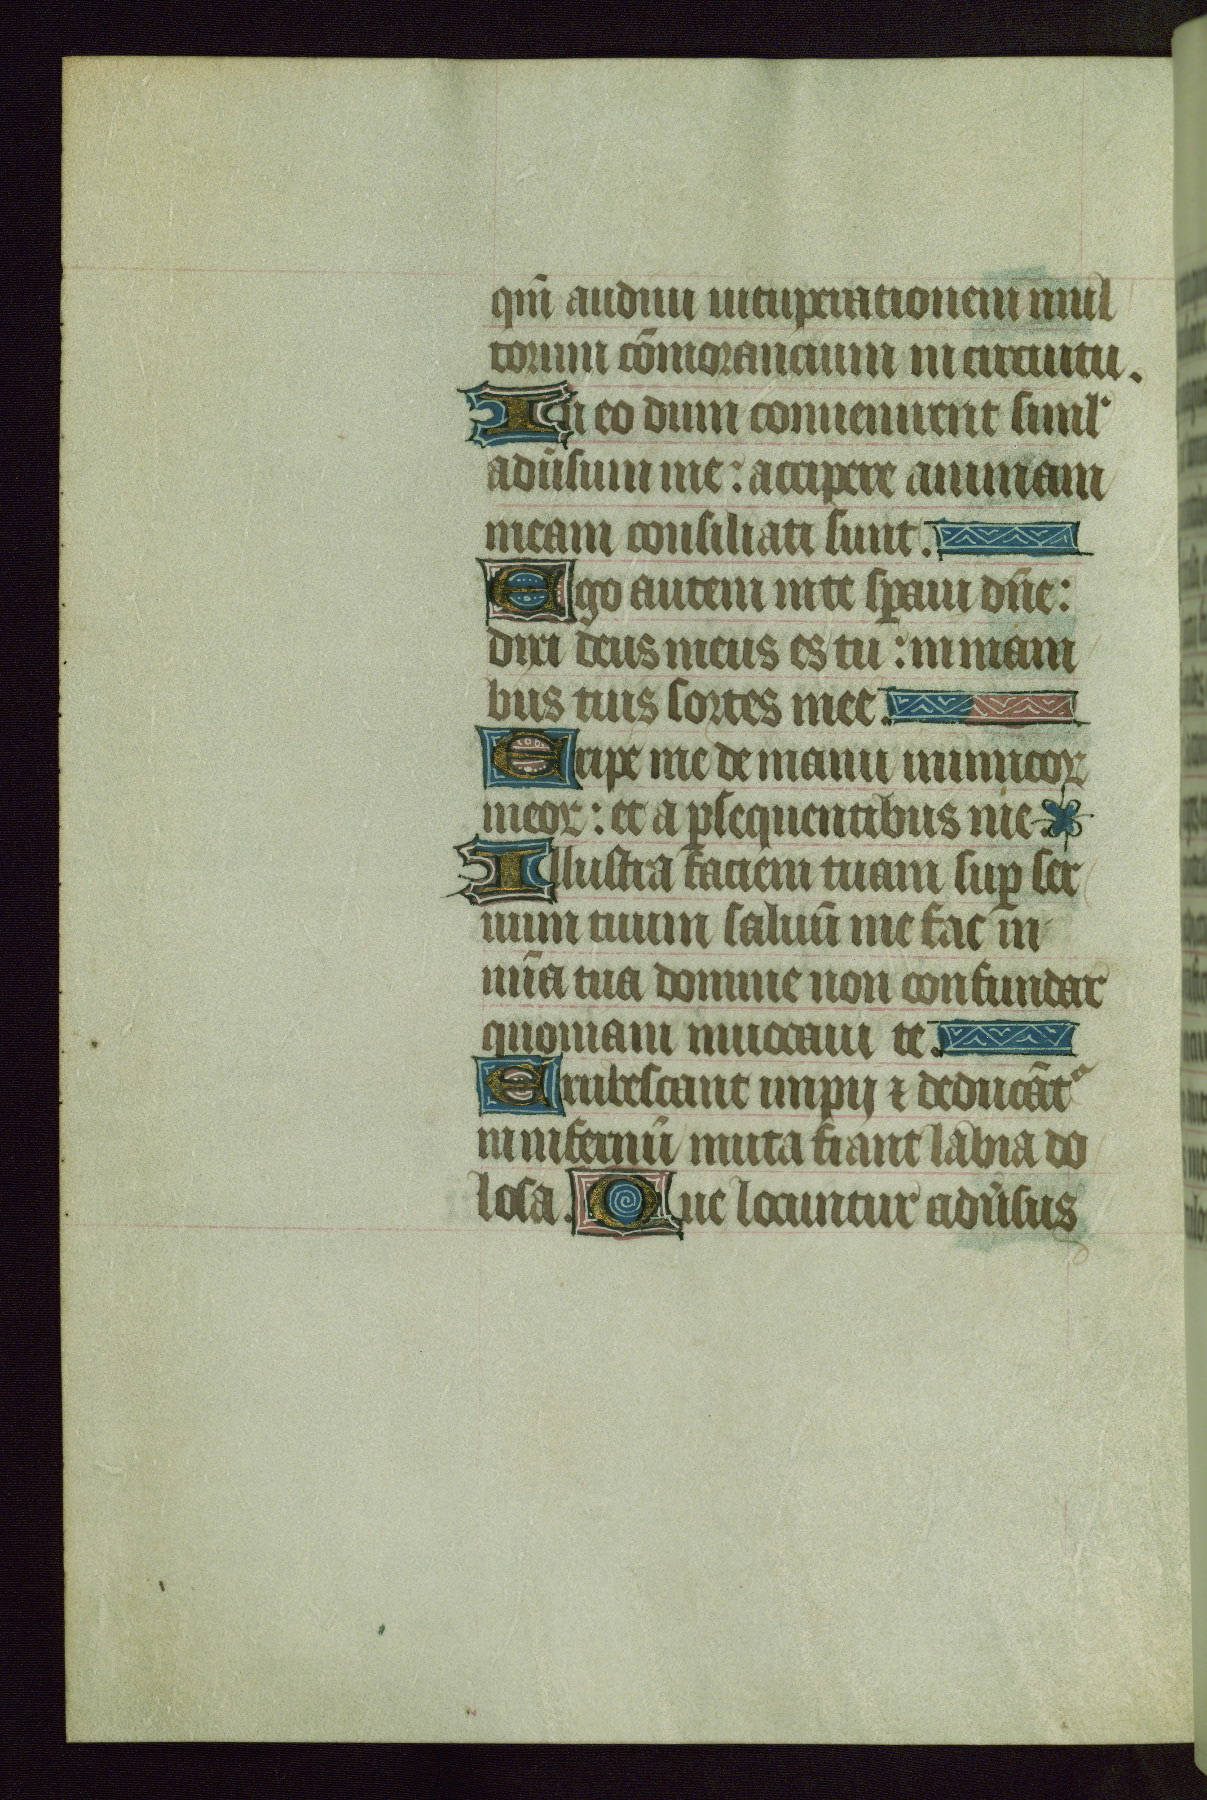 qm̄ audiui uituperationem mul
torum cōmorancium in circuitu.
In eo dum conuenirent simlˀ
adūsum me: accipere animam
meam consiliati sunt.
Ego autem in te sꝑaui dn̄e:
dixi deus meus es tu: in mani
bus tuis sortes mee.
Eripe me de manu inimicoꝝ
meoꝝ: et a ꝑsequentibus me.
Illustra faciem tuam suꝑ ser
uum tuum saluū me fac in
mīa tua domine non confundar
quoniam inuocaui te.
Erubescant impij ⁊ deducāt᷑
in infernū muta fiant labia do
losa. Que locuntur adūsus